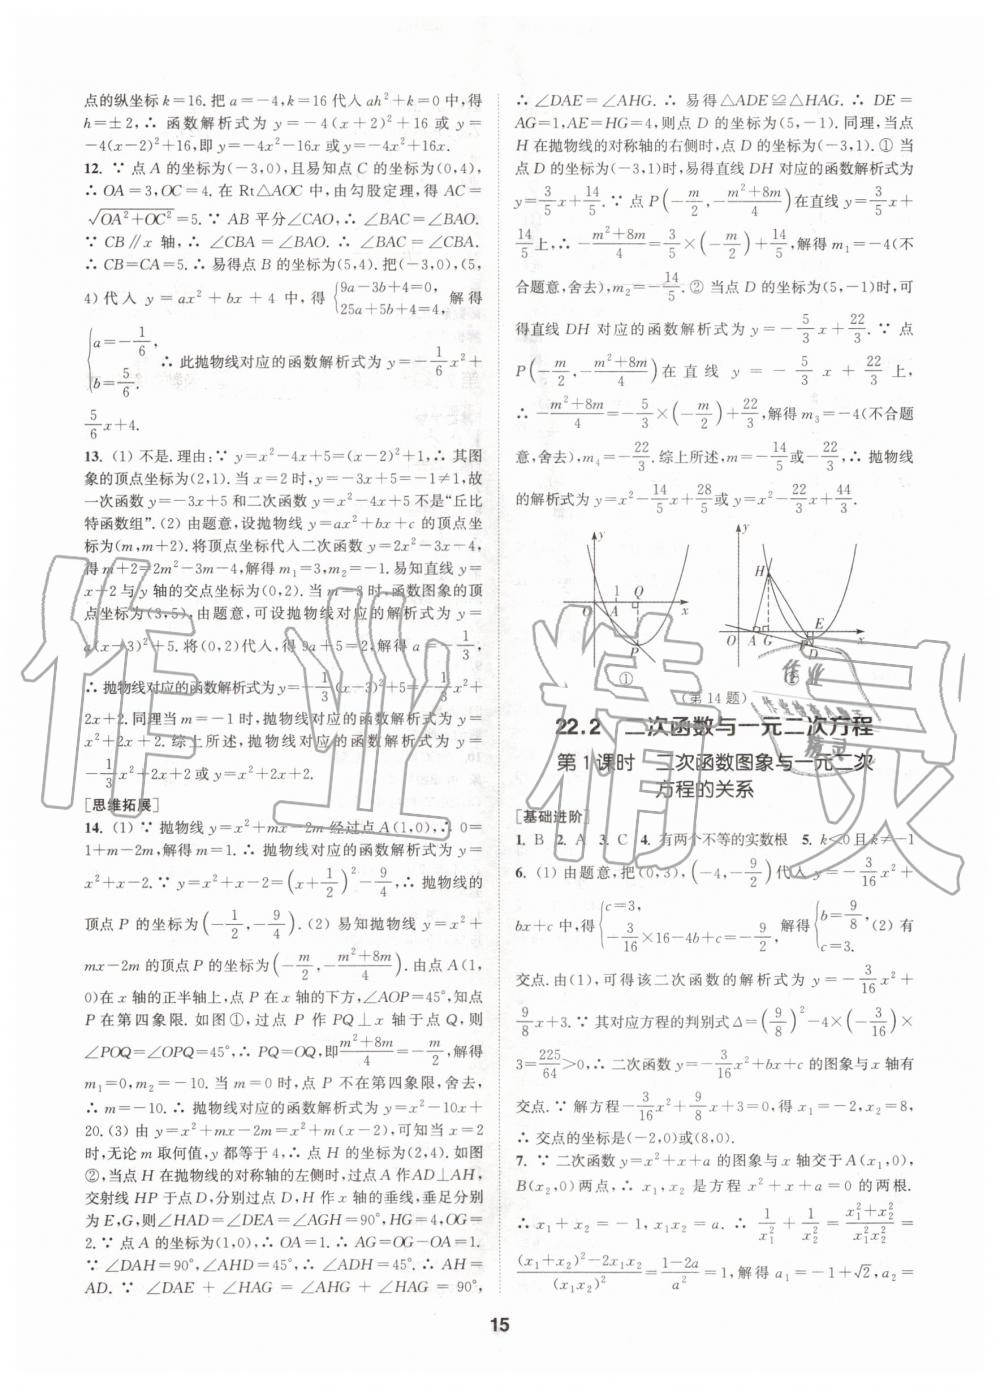 点的纵坐标k=16.把a=-4,k=16代入ah²+k=0中,得
h=±2,∴ 函数解析式为y=-4(x+2)²+16或y=
-4(x-2)²+16,即y=-4x²-16x或y=-4x²+16x.
12. ∵ 点A的坐标为(-3,0),且易知点C的坐标为(0,4),
∴ OA=3,OC=4.在Rt△AOC中,由勾股定理,得AC=
√(OA²+OC²)=5.∵ AB平分∠CAO,∴ ∠BAC=∠BAO.
∵ CB∥x轴,∴ ∠CBA=∠BAO.∴ ∠BAC=∠CBA.
∴ CB=CA=5.∴ 易得点B的坐标为(5,4).把(-3,0),(5,
4)代入y=ax²+bx+4中,得{9a-3b+4=0, 25a+5b+4=4, 解得
{a=-1/6, b=5/6. ∴ 此抛物线对应的函数解析式为y=-1/6x²+
5/6x+4.
13. (1) 不是.理由:∵ y=x²-4x+5=(x-2)²+1,∴ 其图
象的顶点坐标为(2,1).当x=2时,y=-3x+5=-1≠1,故
一次函数y=-3x+5和二次函数y=x²-4x+5不是“丘比
特函数组”.(2) 由题意,设抛物线y=ax²+bx+c的顶点坐
标为(m,m+2).将顶点坐标代入二次函数y=2x²-3x-4,
得m+2=2m²-3m-4,解得m₁=3,m₂=-1.易知直线y=
x+2与y轴的交点坐标为(0,2).当m=3时,函数图象的顶
点坐标为(3,5),由题意,可设抛物线对应的函数解析式为y=
a(x-3)²+5.将(0,2)代入,得9a+5=2,解得a=-1/3,
∴ 抛物线对应的函数解析式为y=-1/3(x-3)²+5=-1/3x²+
2x+2.同理,当m=-1时,抛物线对应的函数解析式为y=
x²+2x+2.综上所述,抛物线对应的函数解析式为y=
-1/3x²+2x+2或y=x²+2x+2.
[思维拓展]
14. (1) ∵ 抛物线y=x²+mx-2m经过点A(1,0),∴ 0=
1+m-2m,解得m=1.∴ 抛物线对应的函数解析式为y=
x²+x-2.∵ y=x²+x-2=(x+1/2)²-9/4,∴ 抛物线的
顶点P的坐标为(-1/2,-9/4).(2) 易知抛物线y=x²+
mx-2m的顶点P的坐标为(-m/2,-(m²+8m)/4).由点A(1,
0)在x轴的正半轴上,点P在x轴的下方,∠AOP=45°,知点
P在第四象限.如图①,过点P作PQ⊥x轴于点Q,则
∠POQ=∠OPQ=45°,∴ PQ=OQ,即(m²+8m)/4=-m/2,解得
m₁=0,m₂=-10.当m=0时,点P不在第四象限,舍去,
∴ m=-10.∴ 抛物线对应的函数解析式为y=x²-10x+
20.(3) 由y=x²+mx-2m=x²+m(x-2),可知当x=2
时,无论m取何值,y都等于4,∴ 点H的坐标为(2,4).如图
②,当点H在抛物线的对称轴的左侧时,过点A作AD⊥AH,
交射线HP于点D,分别过点D,H作x轴的垂线,垂足分别
为E,G,则∠HAD=∠DEA=∠AGH=90°,HG=4,OG=
2.∵ 点A的坐标为(1,0),∴ OA=1.∴ AG=OG-OA=1.
∵ ∠DAH=90°,∠AHD=45°,∴ ∠ADH=45°.∴ AH=
AD.∵ ∠DAE+∠HAG=∠AHG+∠HAG=90°,
∴ ∠DAE=∠AHG.∴ 易得△ADE≌△HAG.∴ DE=
AG=1,AE=HG=4,则点D的坐标为(5,-1).同理,当点
H在抛物线的对称轴的右侧时,点D的坐标为(-3,1).① 当
点D的坐标为(-3,1)时,易得直线DH对应的函数解析式为
y=3/5x+14/5.∵ 点P(-m/2,-(m²+8m)/4)在直线y=3/5x+
14/5上,∴ -(m²+8m)/4=3/5×(-m/2)+14/5,解得m₁=-4(不
合题意,舍去),m₂=-14/5.② 当点D的坐标为(5,-1)时,可
得直线DH对应的函数解析式为y=-5/3x+22/3.∵ 点
P(-m/2,-(m²+8m)/4)在直线y=-5/3x+22/3上,
∴ -(m²+8m)/4=-5/3×(-m/2)+22/3,解得m₃=-4(不合题
意,舍去),m₄=-22/3.综上所述,m=-14/5或-22/3,∴ 抛物线
的解析式为y=x²-14/5x+28/5或y=x²-22/3x+44/3.
y 1 Q O A x P ①
y H E O A G x P D ②
(第14题)
22.2 二次函数与一元二次方程
第1课时 二次函数图象与一元二次
方程的关系
[基础进阶]
1. B 2. A 3. C 4. 有两个不等的实数根 5. k<0且k≠-1
6. (1) 由题意,把(0,3),(-4,-9/2)代入y=-3/16x²+
bx+c中,得{c=3, -3/16×16-4b+c=-9/2, 解得{b=9/8, c=3. (2) 有
交点.由(1),可得该二次函数的解析式为y=-3/16x²+
9/8x+3.∵ 其对应方程的判别式Δ=(9/8)²-4×(-3/16)×
3=225/64>0,∴ 二次函数y=-3/16x²+bx+c的图象与x轴有
交点.∵ 解方程-3/16x²+9/8x+3=0,得x₁=-2,x₂=8,
∴ 交点的坐标是(-2,0)或(8,0).
7. ∵ 二次函数y=x²+x+a的图象与x轴交于A(x₁,0),
B(x₂,0)两点,∴ x₁,x₂是方程x²+x+a=0的两根.
∴ x₁+x₂=-1,x₁x₂=a.∴ 1/x₁²+1/x₂²=(x₁²+x₂²)/(x₁²x₂²)=
((x₁+x₂)²-2x₁x₂)/(x₁x₂)²=(1-2a)/a²=1,解得a₁=-1+√2,a₂=
15
作业精灵
作业
精灵